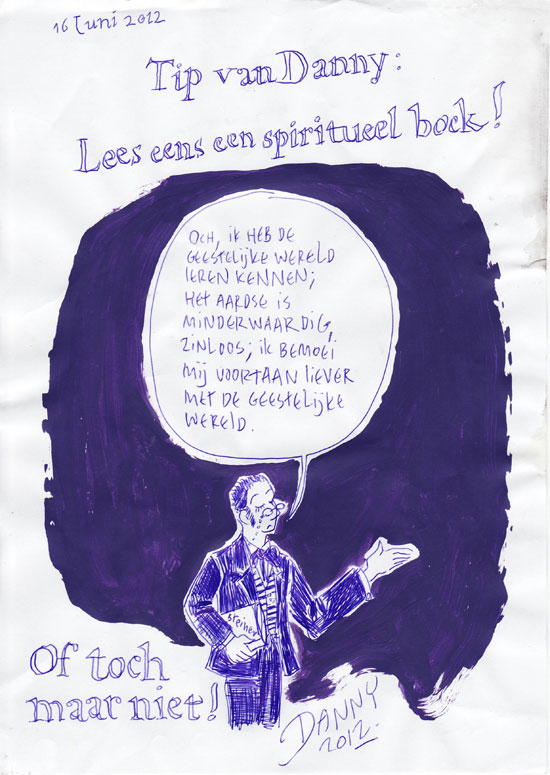 16 Juni 2012
Tip van Danny:
Lees eens een spiritueel boek!
Och, ik heb de
geestelijke wereld
leren kennen;
het aardse is
minderwaardig,
zinloos; ik bemoei
mij voortaan liever
met de geestelijke
wereld.
Steiner
Of toch
maar niet!
DANNY
2012.